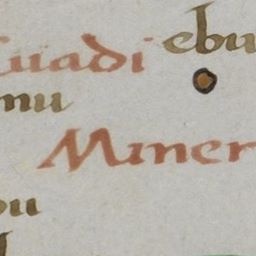 uadi ebu
mu
Miner
ou